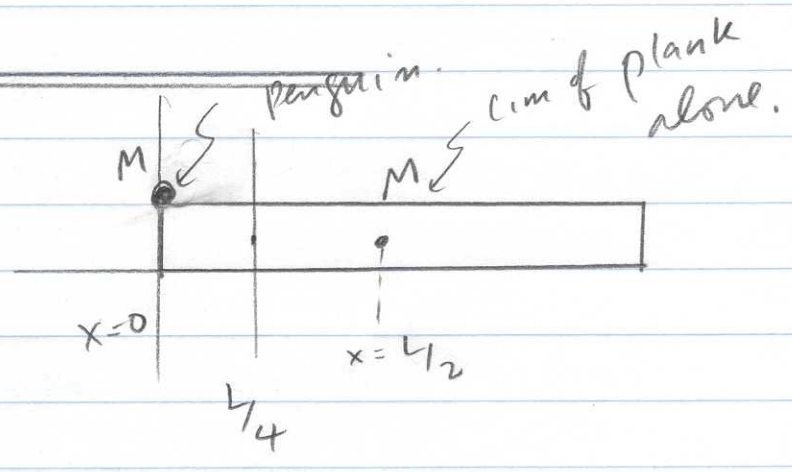 penguin.
c.m of plank
alone.
M
M
x=0
x = L/2
L/4